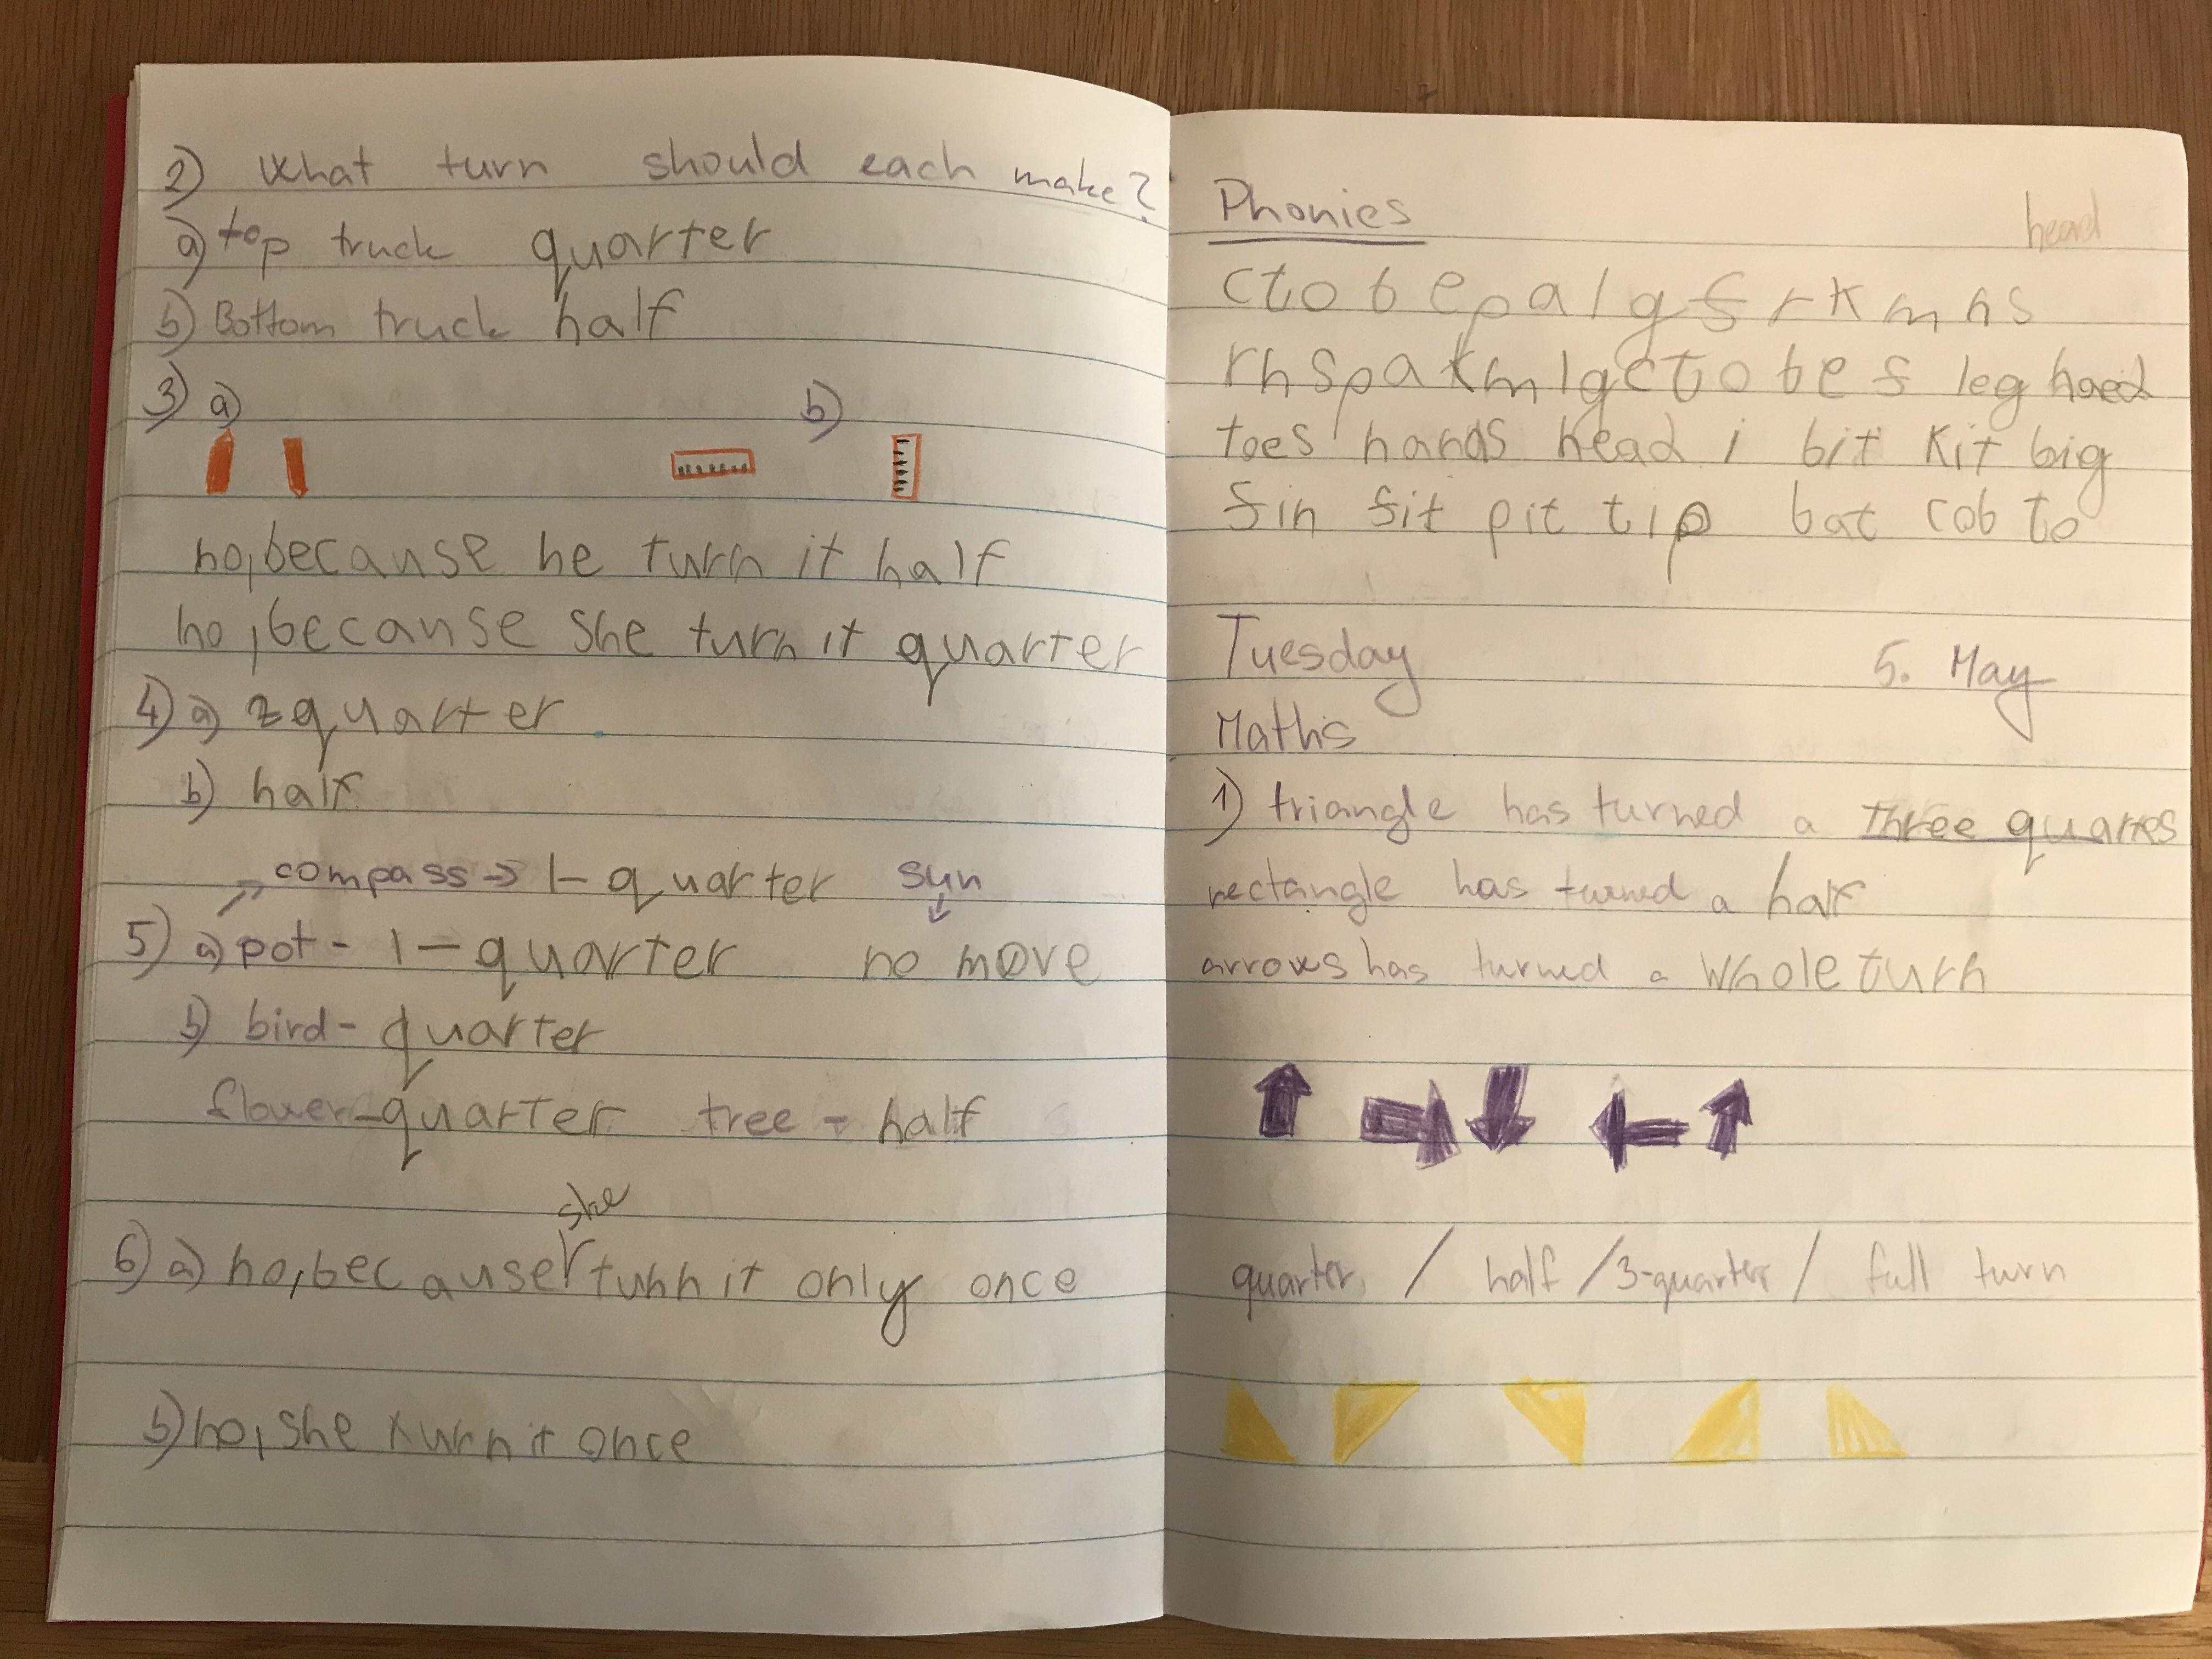 2) What turn should each make?
a) top truck quarter
b) Bottom truck half
3) a) b)
no, because he turn it half
no, because she turn it quarter
4) a) 2 quarter
b) half
compass → 1-quarter sun
5) a) pot - 1 - quarter no move
b) bird - quarter
flower - quarter tree - half
she
6) a) no, because turn it only once
b) no, she turn it once
Phonies
head
c t o b e p a l g f r k m n s
r n s p a k m l g c t o b e f leg haed
toes hands head i bit kit big
fin fit pit tip bat cob to
Tuesday 5. May
Maths
1) triangle has turned a three quartes
rectangle has turned a half
arrows has turned a whole turn
quarter / half / 3-quarter / full turn